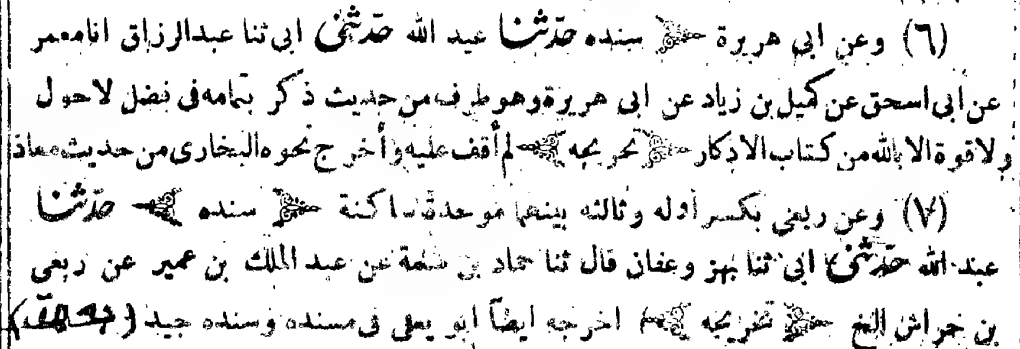 (٦) وعن ابي هريرة ﴿ سنده حدثنا عبد الله حدثني ابى ثنا عبدالرزاق انا معمر
عن أبى اسحق عن كميل بن زياد عن ابى هريرة وهو طرف من حديث ذكر بتمامه فى فضل لاحول
ولاقوة الا بالله من كتاب الاذكار ﴿ تخريجه ﴾ لم أقف عليه وأخرج نحوه البخارى من حديث معاذ
(٧) وعن ربعى بكسر أوله وثالثه بينهما موحدة ساكنة ﴿ سنده ﴾ حدثنا
عبد الله حدثنى ابى ثنا بهز وعفان قال ثنا حماد بن سلمة عن عبد الملك بن عمير عن ربعى
بن خراش الخ ﴿ تخريجه ﴾ اخرجه ايضاً ابو يعلى فى مسنده وسنده جيد